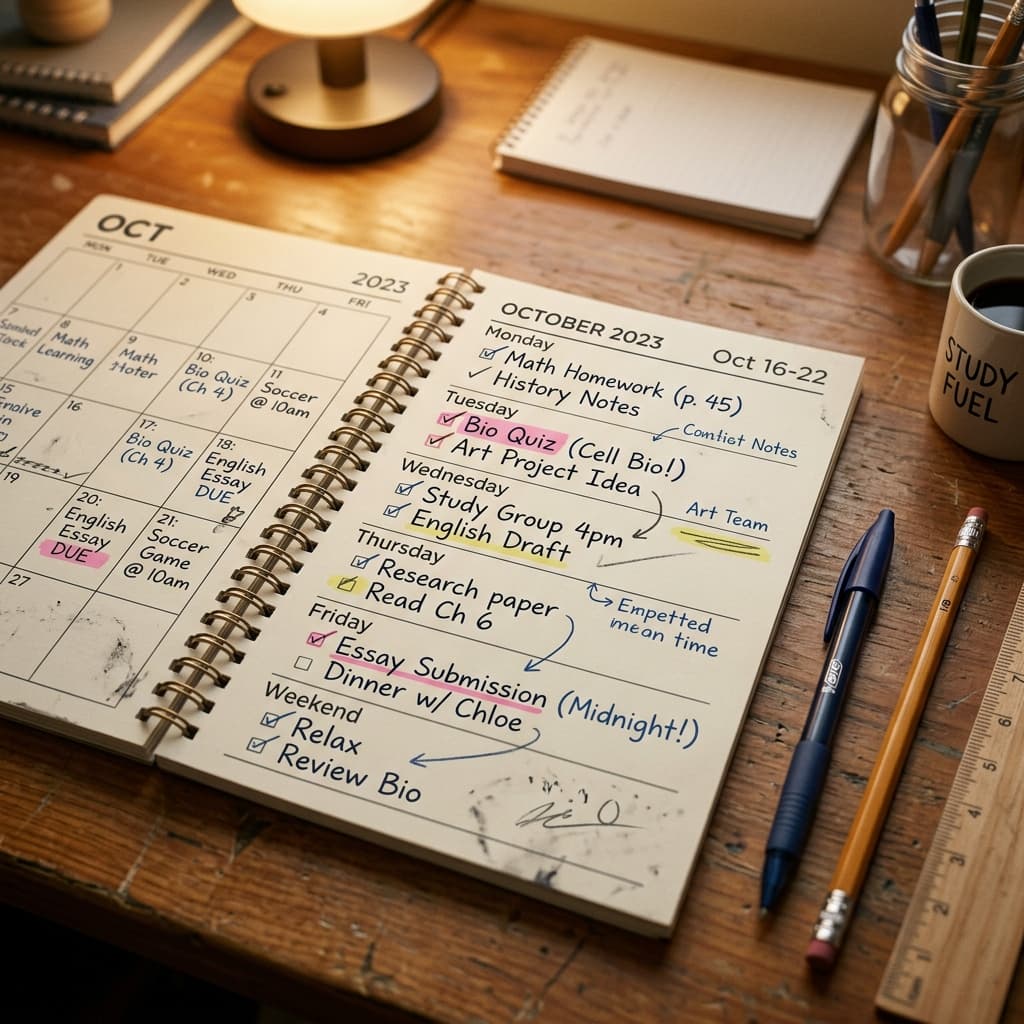 OCT
2023
MON TUE WED THU FRI
1 2 3 4
7
8
Math
Learning
9
Math
10:
Bio Quiz
(Ch 4)
11
Soccer
@ 10am
15
16
17:
Bio Quiz
(Ch 4)
18:
English
Essay
DUE
19
20:
English
Essay
DUE
21:
Soccer
Game
@ 10am
27
OCTOBER 2023 Oct 16-22
Monday
Math Homework (p. 45)
History Notes
Tuesday
Bio Quiz (Cell Bio!)
Comtist Notes
Art Project Idea
Wednesday
Study Group 4pm
Art Team
English Draft
Thursday
Research paper
Empetted
mean time
Read Ch 6
Friday
Essay Submission (Midnight!)
Dinner w/ Chloe
Weekend
Relax
Review Bio
STUDY
FUEL
BIC
7
6
5
4
3
2